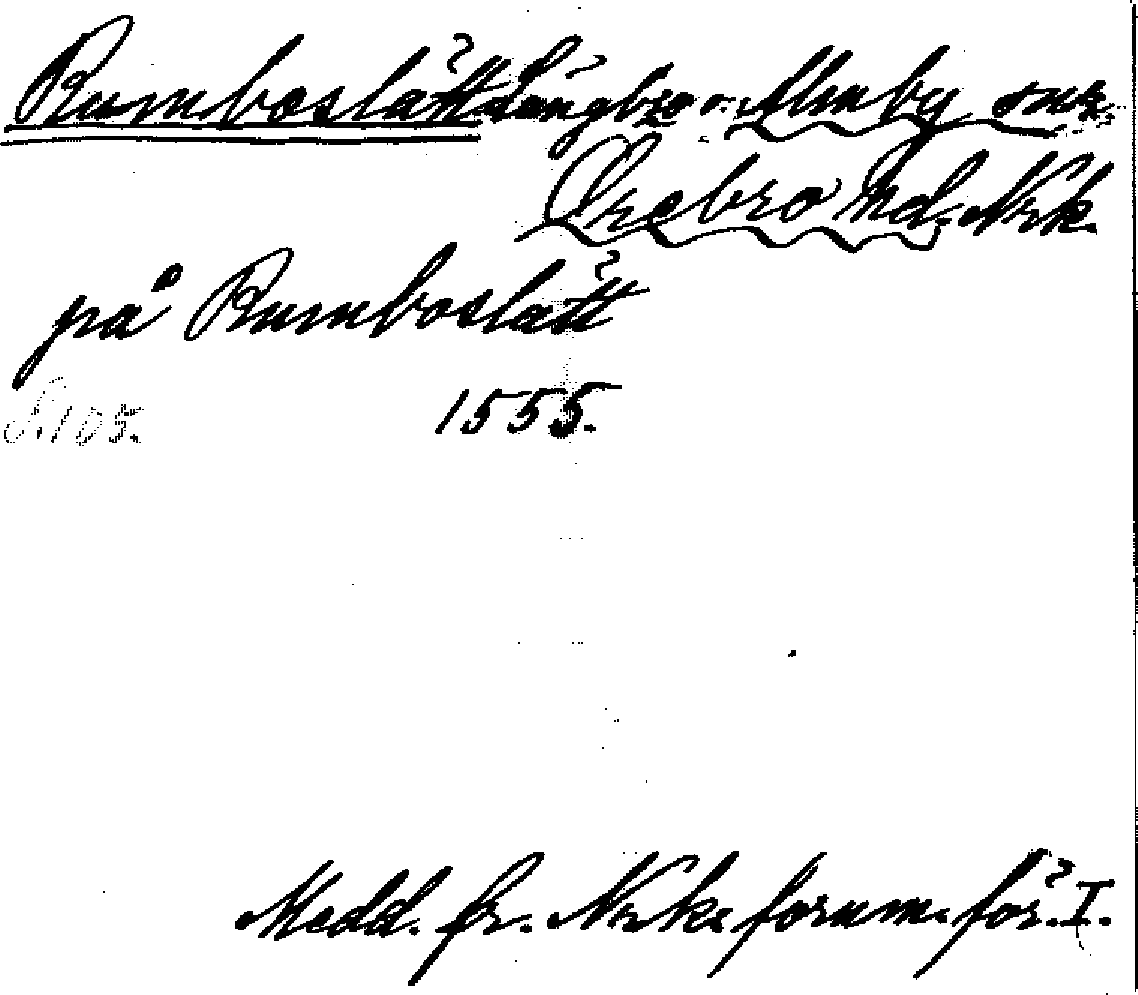 Rumboslätt Längbro o. Almby snr
Örebro hd. Nrk.
på Rumboslätt
S. 105. 1555.
Medd. fr. Nrks fornm. för. I.